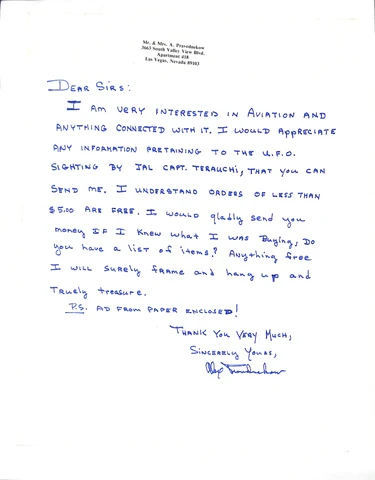 Mr. & Mrs. A. Pravednekow
3663 South Valley View Blvd.
Las Vegas, Nevada 89103
DEAR SIRS:
I AM VERY INTERESTED IN AVIATION AND
ANYTHING CONNECTED WITH IT. I WOULD APPRECIATE
ANY INFORMATION PRETAINING TO THE U.F.O.
SIGHTING BY JAL CAPT. TERAUCHI, THAT YOU CAN
SEND ME. I UNDERSTAND ORDERS OF LESS THAN
$5.00 ARE FREE. I WOULD gladly send you
money IF I KNEW WHAT I WAS BUYING, DO
you have a list of items? Anything free
I will surely frame and hang up and
Truely treasure.
P.S. AD FROM PAPER ENCLOSED!
THANK YOU VERY MUCH,
SINCERELY YOURS,